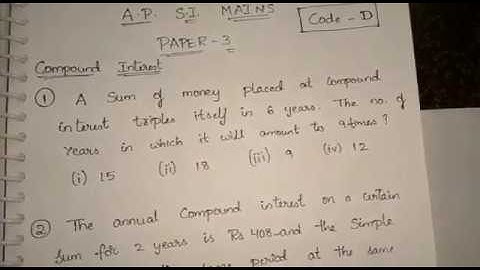 A.P. S.I. MAINS
Code - D
PAPER - 3
Compound Interest
① A Sum of money placed at compound
interest triples itself in 6 years. The no. of
Years in which it will amount to 9 times?
(i) 15 (ii) 18 (iii) 9 (iv) 12
② The annual Compound interest on a certain
Sum for 2 years is Rs 408 and the Simple
period at the same